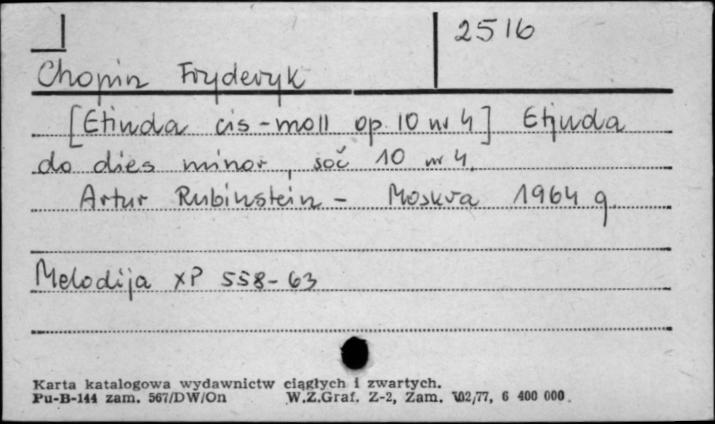 2516
Chopin Fryderyk
[Etiuda cis-moll op. 10 nr 4] Etjuda
do dies minor, soč 10 nr 4.
Artur Rubinstein - Moskva 1964 g.
Melodija XP 558-63
Karta katalogowa wydawnictw ciągłych i zwartych.
Pu-B-144 zam. 567/DW/On W.Z.Graf. Z-2, Zam. 102/77, 6 400 000.